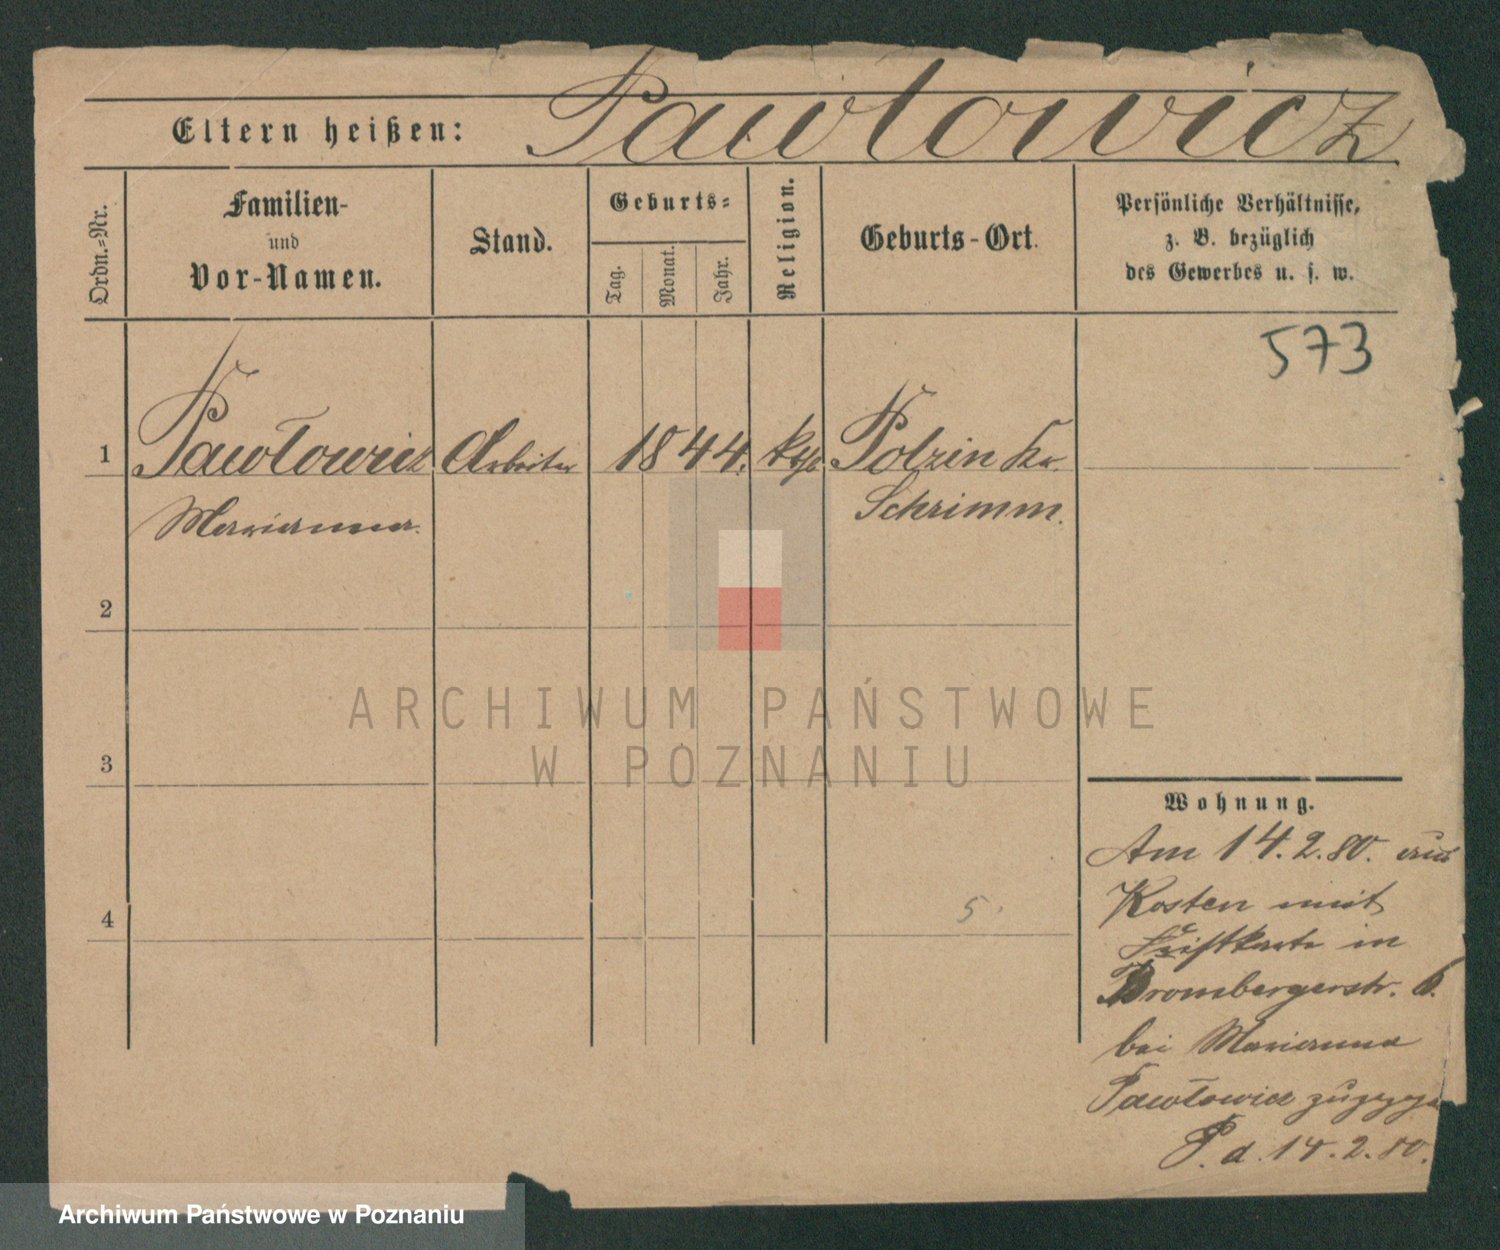 Eltern heißen: Pawłowicz
Ordn.=Nr.
Familien-
und
Vor-Namen.
Stand.
Geburts=
Tag.
Monat.
Jahr.
Religion.
Geburts-Ort.
Persönliche Verhältnisse,
z. B. bezüglich
des Gewerbes u. s. w.
573
1 Pawłowicz Arbeiter 1844. kth Polzin Kr.
Marianna. Schrimm.
2
3
4
5
Wohnung.
Am 14.2.80. aus
Kosten mit
in
Brombergerstr. 6.
bei Marianna
Pawłowicz
P. d. 14.2.80.
ARCHIWUM PAŃSTWOWE
W POZNANIU
Archiwum Państwowe w Poznaniu